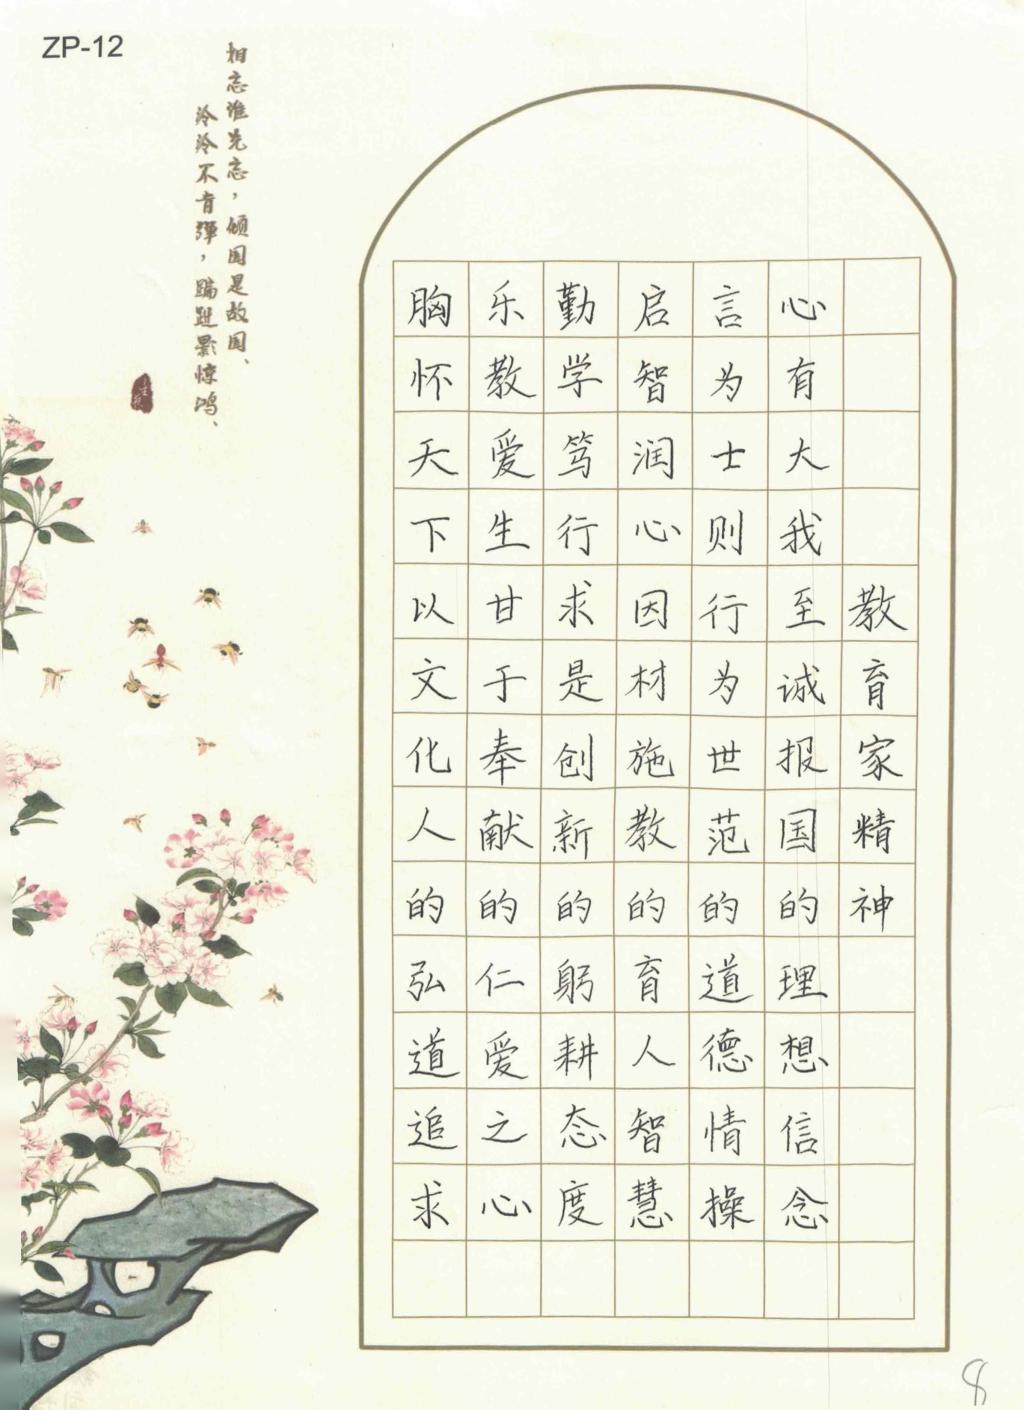 ZP-12
相忘谁先忘，倾国是故国、
泠泠不肯弹，蹁跹影惊鸿、
教育家精神
心有大我至诚报国的理想信念
言为士则行为世范的道德情操
启智润心因材施教的育人智慧
勤学笃行求是创新的躬耕态度
乐教爱生甘于奉献的仁爱之心
胸怀天下以文化人的弘道追求
8